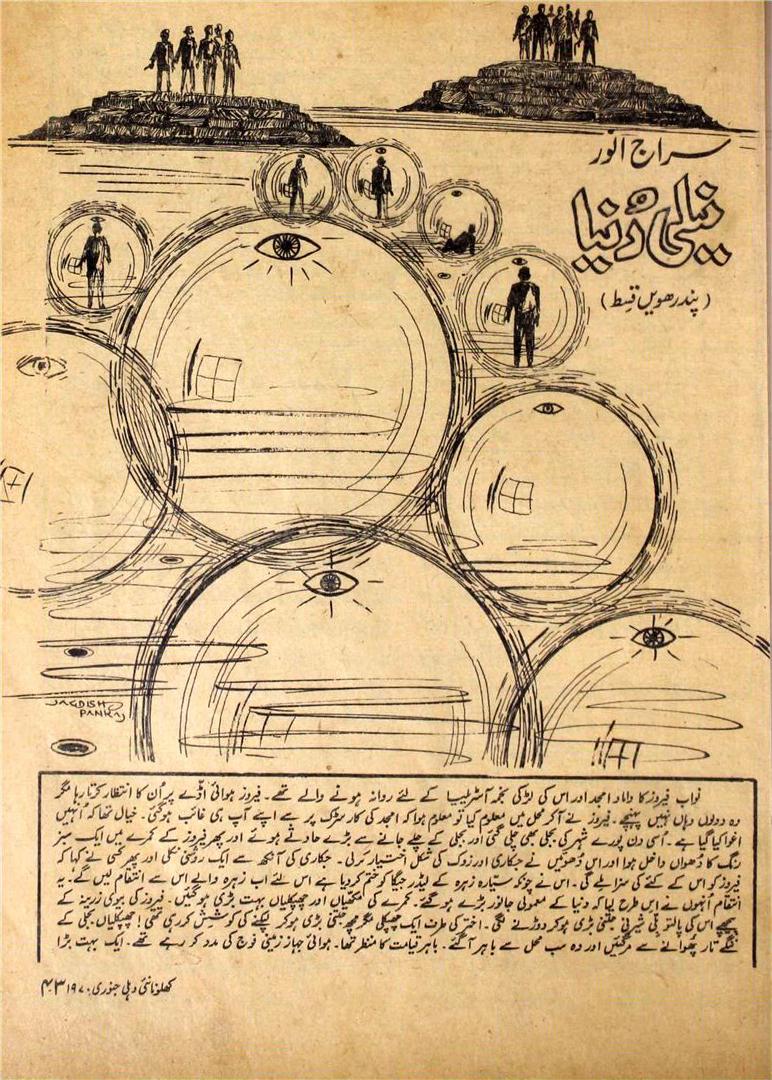 سراج انور
نیلی دُنیا
(پندرھویں قِسط)
JAGDISH
PANKAJ
نواب فیروز کا داماد امجد اور اس کی لڑکی نجمہ آسٹریلیا کے لئے روانہ ہونے والے تھے۔ فیروز ہوائی اڈّے پر اُن کا انتظار کرتا رہا مگر
وہ دونوں وہاں نہیں پہنچے۔ فیروز نے آکر محل میں معلوم کیا تو معلوم ہوا کہ امجد کی کار سڑک پر سے اپنے آپ ہی غائب ہوگئی۔ خیال تھا کہ اُنہیں
اغوا کیا گیا ہے۔ اُسی دن پورے شہر کی بجلی بھی چلی گئی اور بجلی کے چلے جانے سے بڑے حادثے ہوئے اور پھر فیروز کے کمرے میں ایک سبز
رنگ کا دُھواں داخل ہوا اور اس دُھوئیں نے جکاری اور زوک کی شکل اختیار کرلی۔ جکاری کی آنکھ سے ایک روشنی نکلی اور پھر کسی نے کہا کہ
فیروز کو اس کے کئے کی سزا ملے گی۔ اس نے چونکہ سیّارہ زہرہ کے لیڈر جیگا کو ختم کر دیا ہے اس لئے اب زہرہ والے اس سے انتقام لیں گے! یہ
انتقام اُنہوں نے اس طرح لیا کہ دنیا کے معمولی جانور بڑے ہوگئے۔ کمرے کی مکھیاں اور چھپکلیاں بہت بڑی ہوگئیں۔ فیروز کی بیوی زرینہ کے
پیچھے اس کی پالتو بلّی شیرنی جتنی بڑی ہو کر دوڑنے لگی۔ اختر کی طرف ایک چھپکلی مگرمچھ جتنی بڑی ہوکر لپکنے کی کوشش کر رہی تھی! چھپکلیاں بجلی کے
ننگے تار چھوانے سے مرگئیں اور وہ سب محل سے باہر آگئے۔ باہر قیامت کا منظر تھا۔ ہوائی جہاز زمینی فوج کی مدد کر رہے تھے۔ ایک بہت بڑا
کھلونا نئی دہلی جنوری ۱۹۷۰ ۴۳